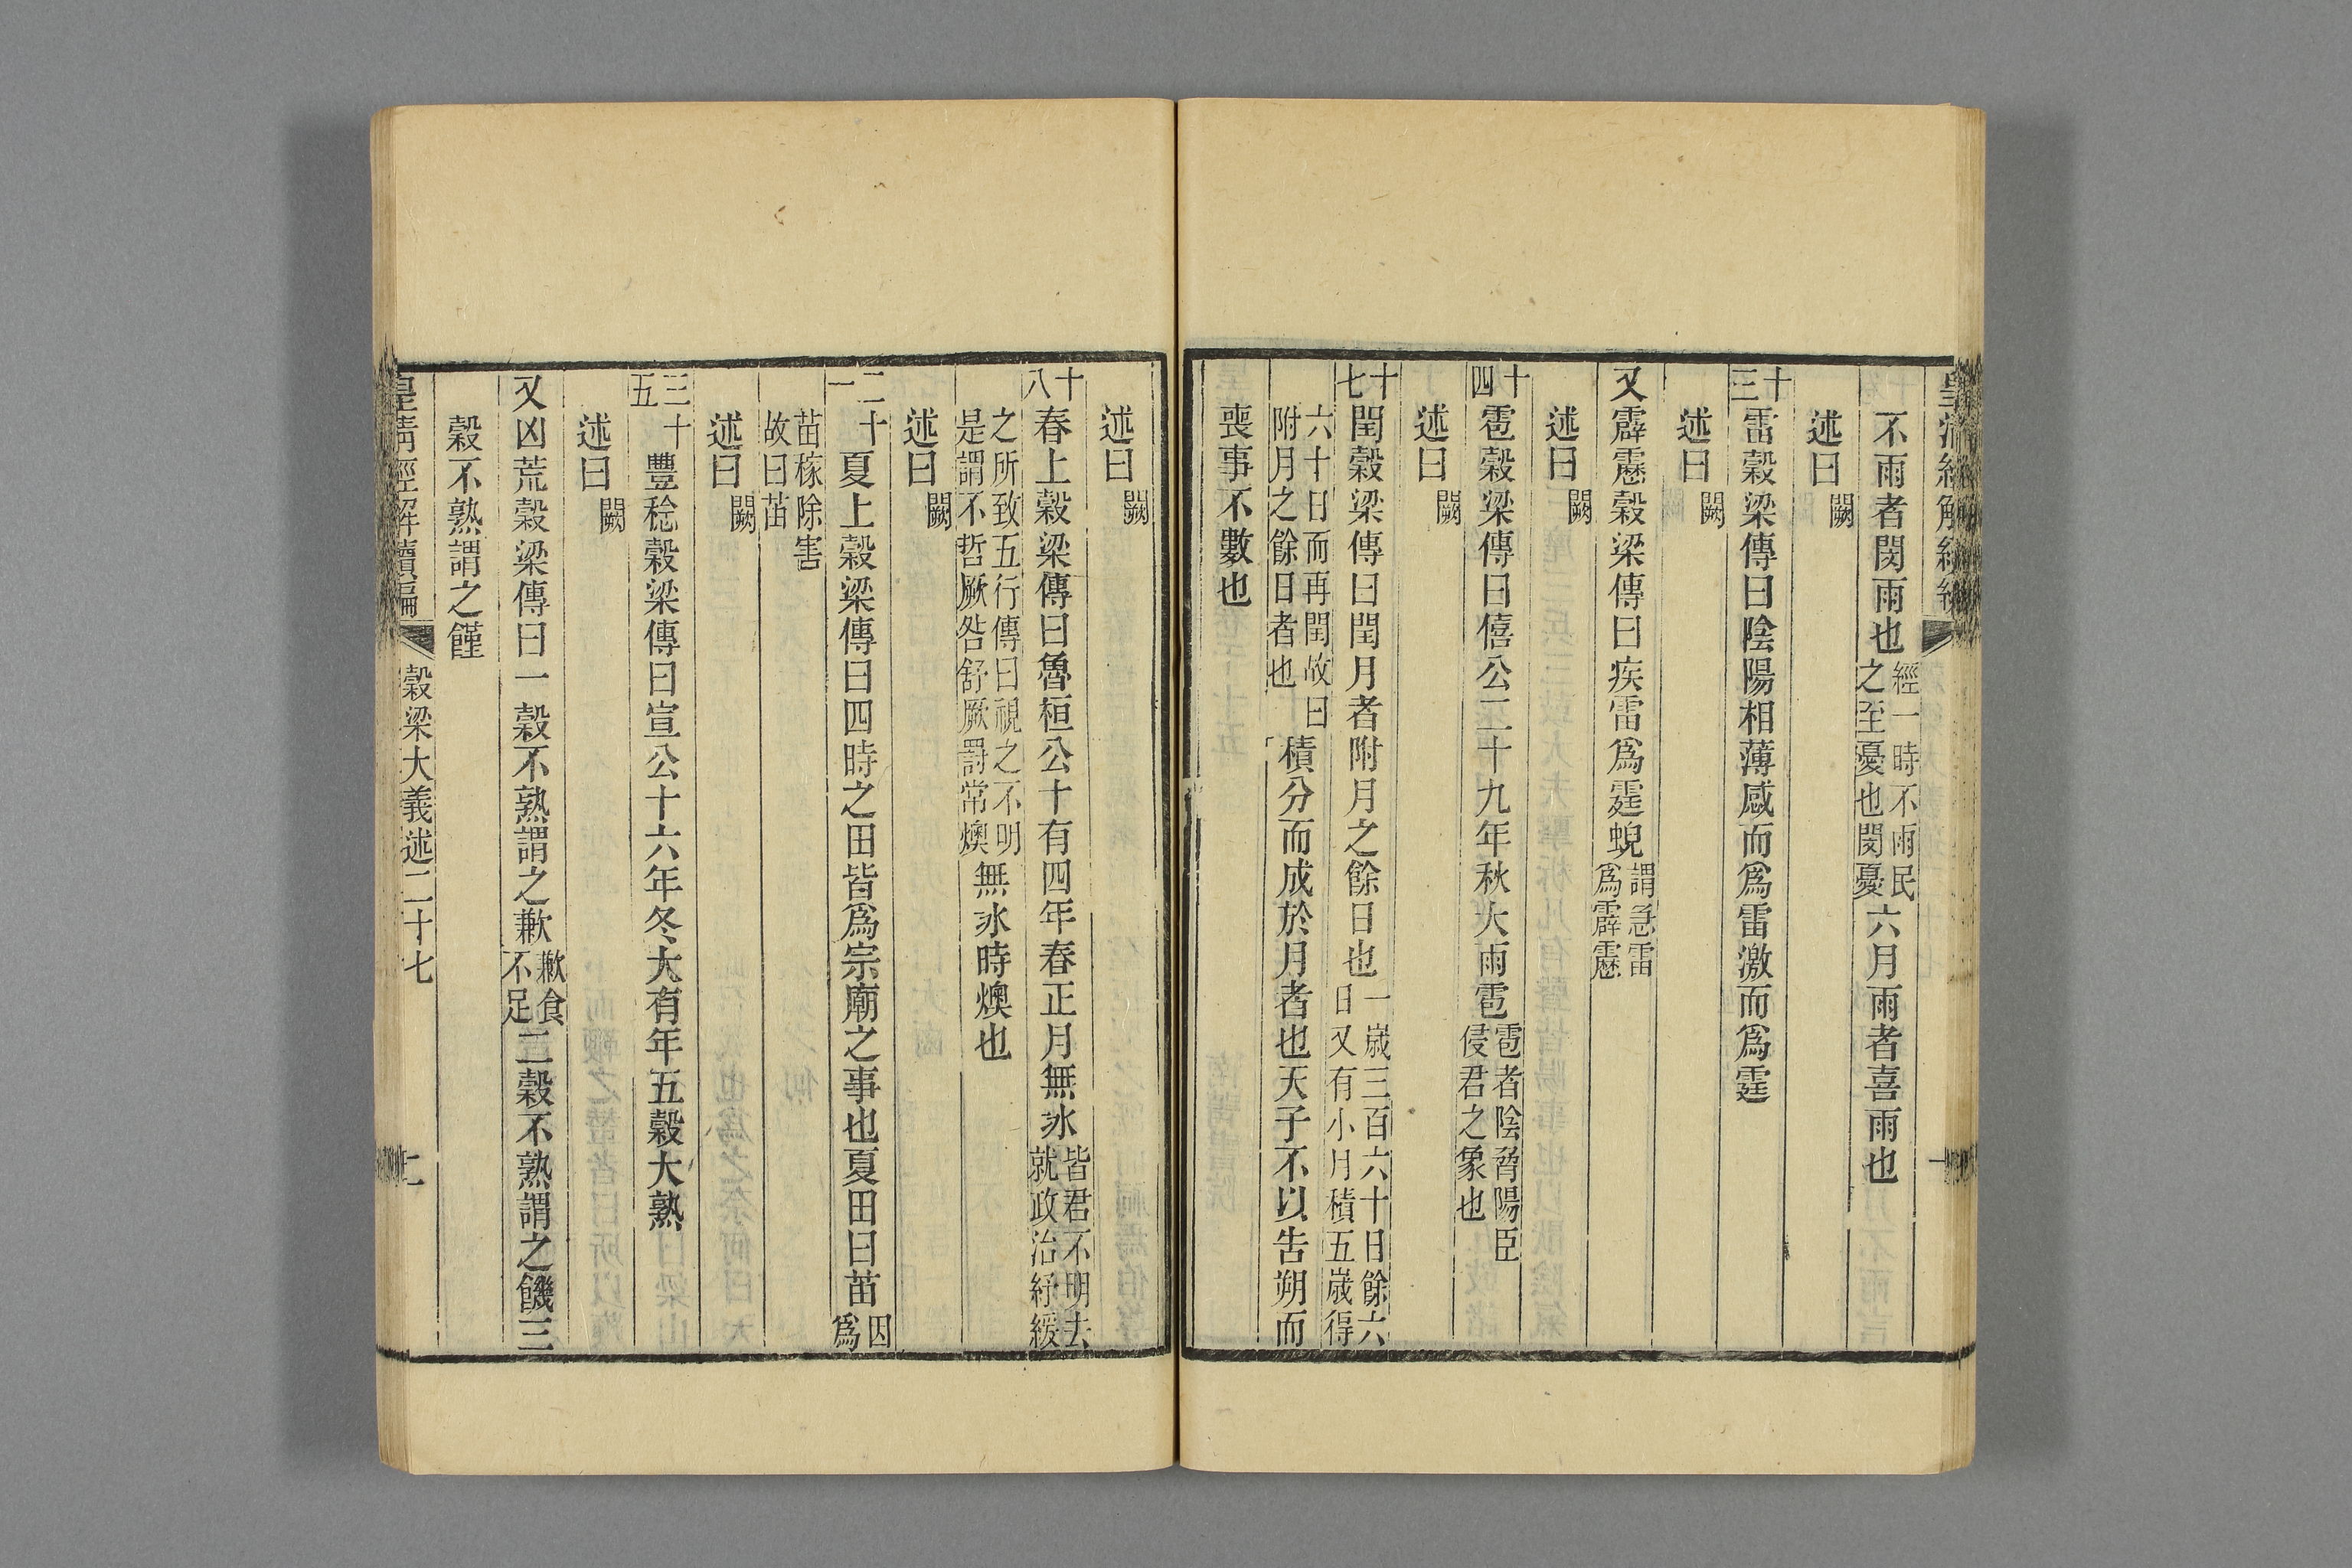 不雨者閔雨也經一時不雨民之至憂也閔憂六月雨者喜雨也
述曰闕
十三雷穀梁傳曰陰陽相薄感而爲雷激而爲霆
述曰闕
又霹靂穀梁傳曰疾雷爲霆蜺謂急雷爲霹靂
述曰闕
十四雹穀梁傳曰僖公二十九年秋大雨雹雹者陰脅陽臣侵君之象也
述曰闕
十七閏穀梁傳曰閏月者附月之餘日也一歲三百六十日餘六日又有小月積五歲得
六十日而再閏故曰附月之餘日者也積分而成於月者也天子不以告朔而
喪事不數也
述曰闕
十八春上穀梁傳曰魯桓公十有四年春正月無氷皆君不明去就政治紓緩
之所致五行傳曰視之不明是謂不哲厥咎舒厥罰常燠無氷時燠也
述曰闕
二十一夏上穀梁傳曰四時之田皆爲宗廟之事也夏田曰苗因爲
苗稼除害故曰苗
述曰闕
三十五豐稔穀梁傳曰宣公十六年冬大有年五穀大熟
述曰闕
又凶荒穀梁傳曰一穀不熟謂之歉歉食不足二穀不熟謂之饑三
穀不熟謂之饉
皇清經解續編
穀梁大義述二十七